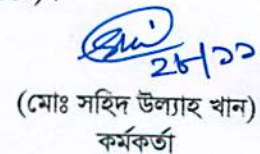 ২৮/১১
(মোঃ সহিদ উল্যাহ খান)
কর্মকর্তা